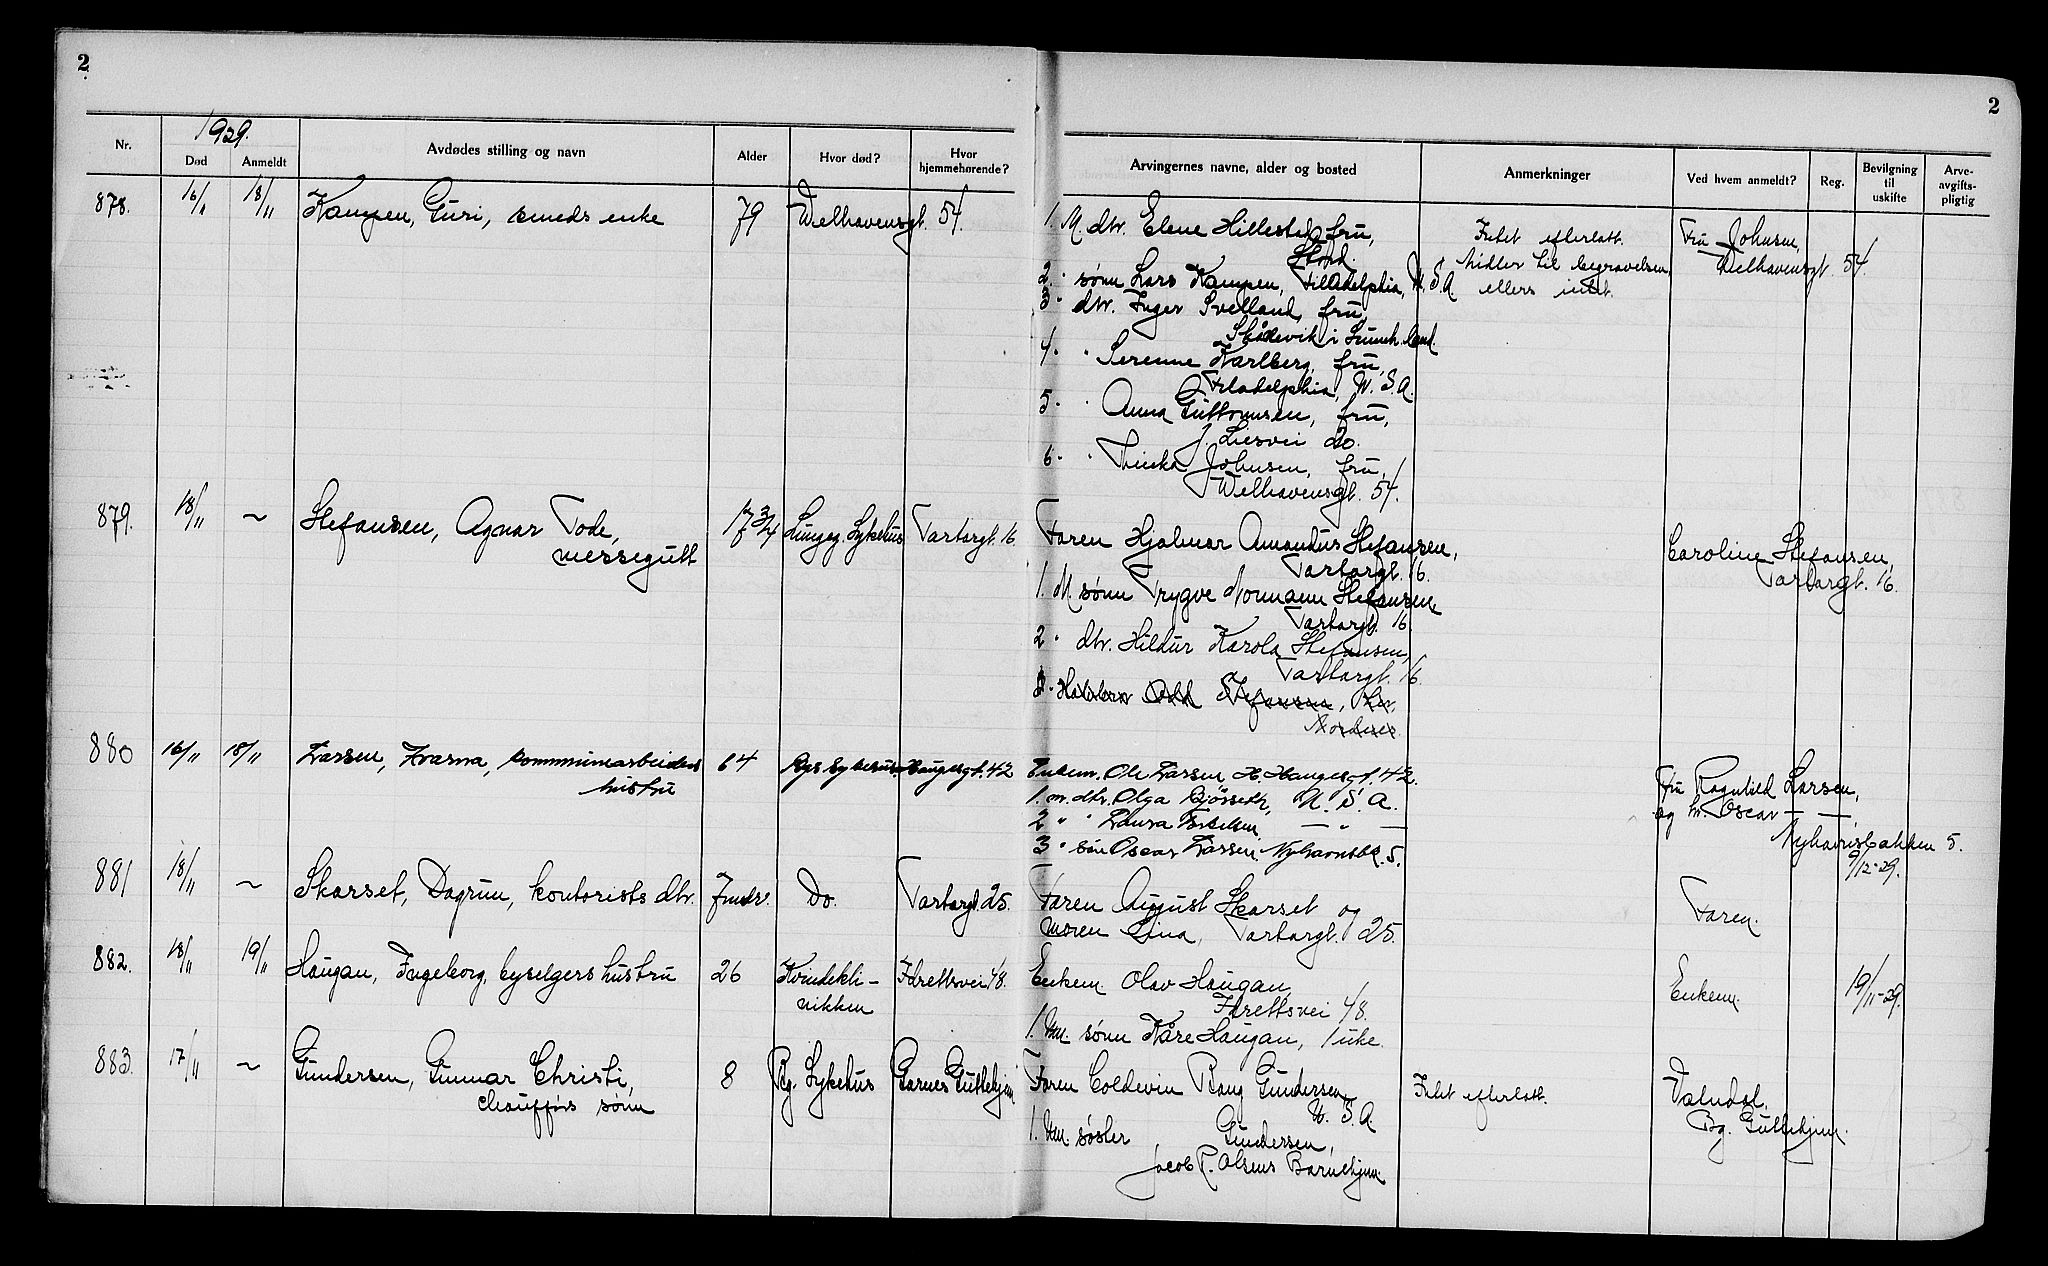 2
2
1929.
Nr.
Død
Anmeldt
Avdødes stilling og navn
Alder
Hvor død?
Hvor hjemmehørende?
Arvingernes navne, alder og bosted
Anmerkninger
Ved hvem anmeldt?
Reg.
Bevilgning til uskifte
Arve-avgifts-pligtig
878. 16/11 18/11 Kampen, Guri, smeds enke 79 Welhavensgt. 54.
1. M. dtr. Elene Hillestad, fru,
Stord.
2. " sønn Lars Kampen, Filadelphia, U.S.A.
3 " dtr. Inger Svelland, fru,
Skånevik i Sunnh.land.
4. " Serenne Karlberg, fru,
Filadelphia, U.S.A.
5. " Anna Guttormsen, fru,
J. Liesvei 20.
6. " Johnsen, fru,
Welhavensgt. 54.
Intet efterlatt.
Midler til begravelsen,
ellers intet.
Fru Johnsen,
Welhavensgt. 54.
879. 18/11 ~ Stefansen, Agnar Tode,
messegutt
17 3/4 Lungeg. Sykehus Tartargt. 16.
Faren Hjalmar Amandus Stefansen,
Tartargt. 16.
1. M. sønn Trygve Normann Stefansen
Tartargt. 16.
2 " dtr. Hildur Karola Stefansen,
Tartargt. 16.
Stefansen,
Caroline Stefansen,
Tartargt. 16.
880 16/11 18/11 Larsen, kommunearbeiders
hustru
64 Bgs Sykehus Haugesgt. 42
Enkem. Ole Larsen H. Haugesgt. 42.
1. m. dtr. Olga U.S.A.
2 " " Laura — " —
3 " søn Oscar Larsen Nyhavnsbk. 5.
Fru Ragnhild Larsen,
og hr. Oscar — —
Nyhavnsbakken 5.
9/12-29.
881 18/11 ~ Skarset, Dagrun, kontorists dtr. 7 mdr. Do. Tartargt. 25.
Faren August Skarset og
moren Lina, Tartargt. 25.
Faren.
882. 18/11 19/11 Haugan, Ingeborg, byselgers hustru 26 Kvindekli-
nikken
Idrettsvei 48.
Enkem. Olav Haugan
Idrettsvei 48.
1. Um. sønn Kåre Haugan, 1 uke.
Enkem.
19/11-29.
883. 17/11 ~ Gundersen, Gunnar Christi,
chaufførs sønn
8 Bg. Sykehus Barnes Guttehjem
Faren Coldevin Bang Gundersen
U.S.A.
1. Um. søster Gundersen,
Jacob R. Olsens Barnehjem.
Intet efterlatt.
Valndal.
Bg. Guttehjem.